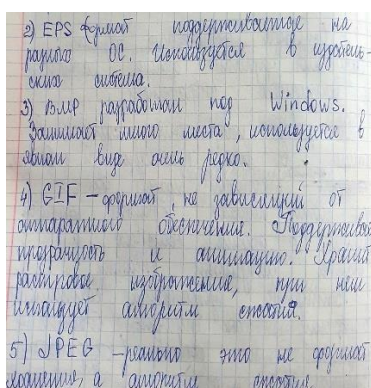 2) EPS формат поддерживаемое на
разных ОС. Используется в издатель-
ских система.
3) BMP разработан под Windows.
Занимает много места, используется в
явном виде очень редко.
4) GIF – формат, не зависящий от
аппаратного обеспечения. Поддержива
прозрачность и анимацию. Хранит
растровое изображение, при нем
использует алгоритм сжатия.
5) JPEG – реально это не формат
а алгоритм сжатия